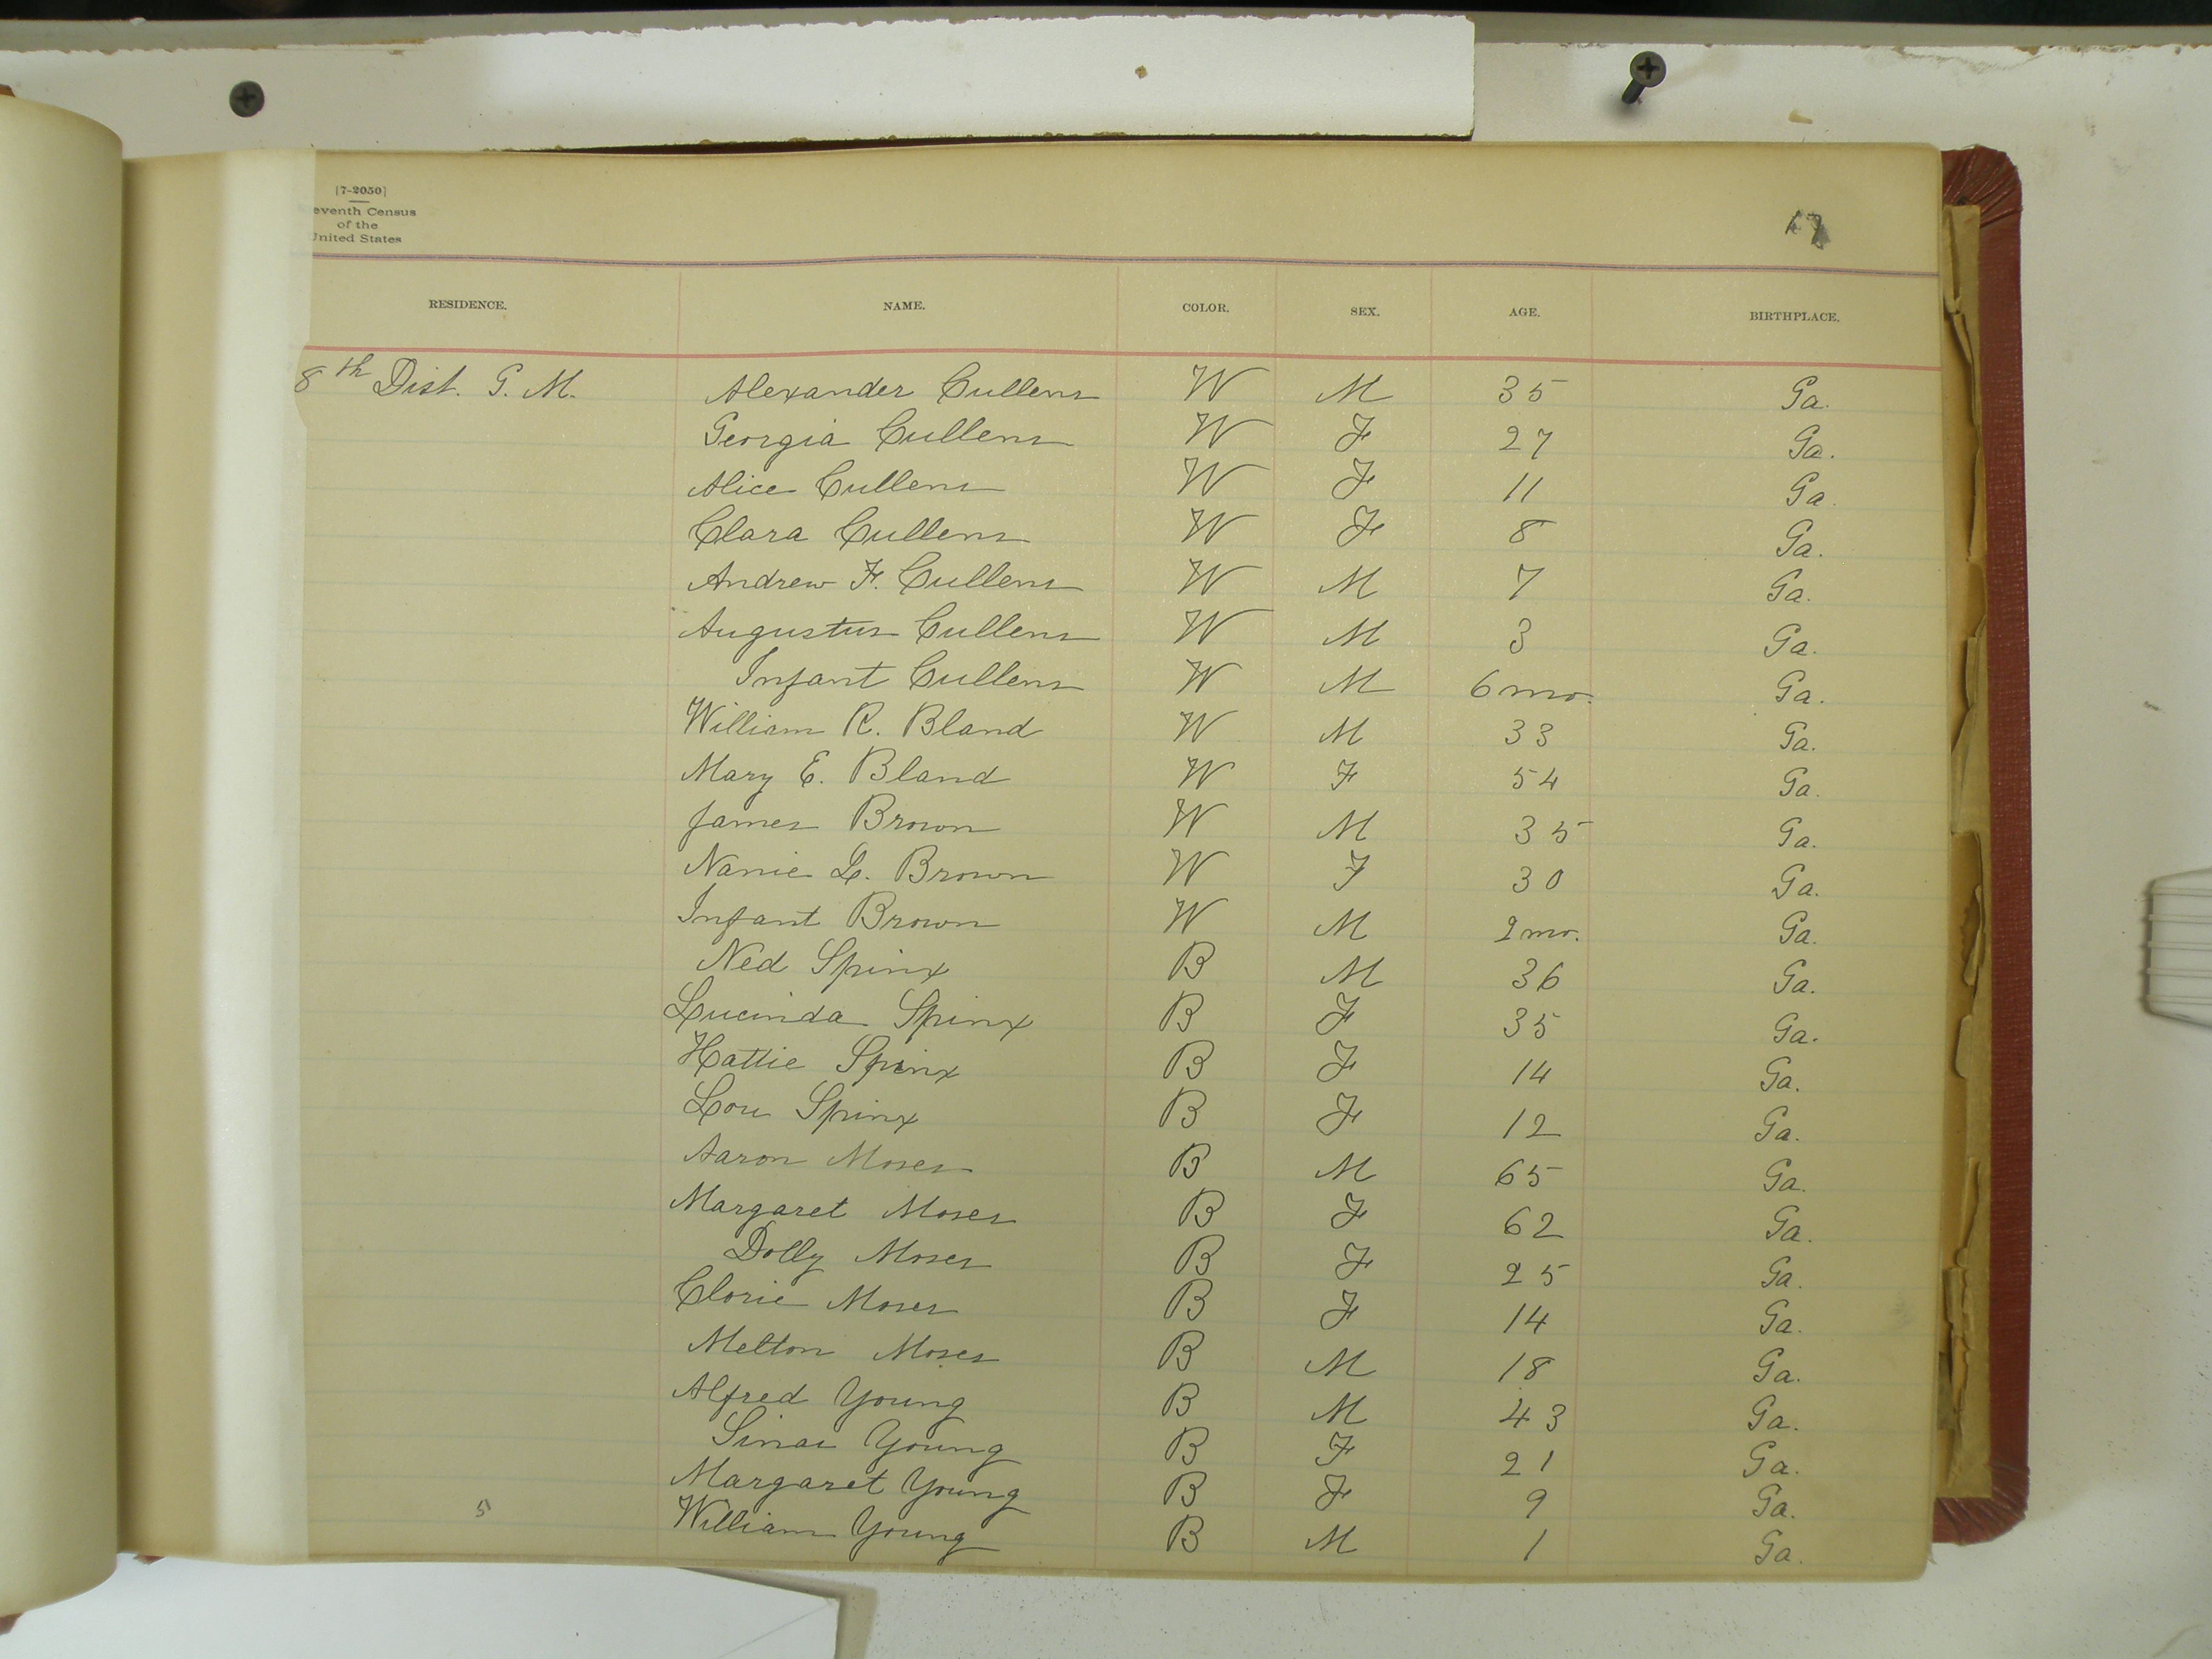 [7-2050]
eventh Census
of the
United States
RESIDENCE. NAME. COLOR. SEX. AGE. BIRTHPLACE.
8th Dist. G. M. Alexander Cullens W M 35 Ga.
Georgia Cullens W F 27 Ga.
Alice Cullens W F 11 Ga.
Clara Cullens W F 8 Ga.
Andrew F. Cullens W M 7 Ga.
Augustus Cullens W M 3 Ga.
Infant Cullens W M 6 mo. Ga.
William R. Bland W M 33 Ga.
Mary E. Bland W F 54 Ga.
James Brown W M 35 Ga.
Nanie L. Brown W F 30 Ga.
Infant Brown W M 2 mo. Ga.
Ned Spinx B M 36 Ga.
Lucinda Spinx B F 35 Ga.
Hattie Spinx B F 14 Ga.
Lou Spinx B F 12 Ga.
Aaron Moses B M 65 Ga.
Margaret Moses B F 62 Ga.
Dolly Moses B F 25 Ga.
Clorie Moses B F 14 Ga.
Melton Moses B M 18 Ga.
Alfred Young B M 43 Ga.
Sinai Young B F 21 Ga.
Margaret Young B F 9 Ga.
5 William Young B M 1 Ga.